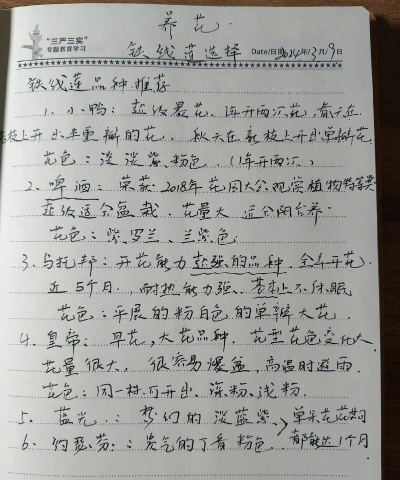 养花.
"三严三实"
专题教育学习
铁线莲选择 Date/日期 2024年3月9日
铁线莲品种推荐
1. 小鸭: 超级暴花, 1年开两次花, 春天在
老枝上开出半重瓣的花. 秋天在新枝上开出单瓣花
花色: 淡淡紫粉色. (1年开两次)
2. 啤酒: 荣获2018年花园大会观赏植物特等奖
超级适合盆栽. 花量大 适合阳台养
花色: 紫罗兰、兰紫色
3. 乌托邦: 开花能力超强的品种, 全年开花
近5个月. 耐热能力强. 基本上不休眠
花色: 平展的粉白色的单瓣大花.
4. 皇帝: 早花, 大花品种, 花型花色变化大
花量很大, 很容易爆盆, 高温时避雨.
花色: 同一株可开出、深粉、浅粉.
5. 蓝光: 梦幻的淡蓝紫 单朵花花期
6. 约瑟芬: 贵气的丁香粉色 都能达1个月